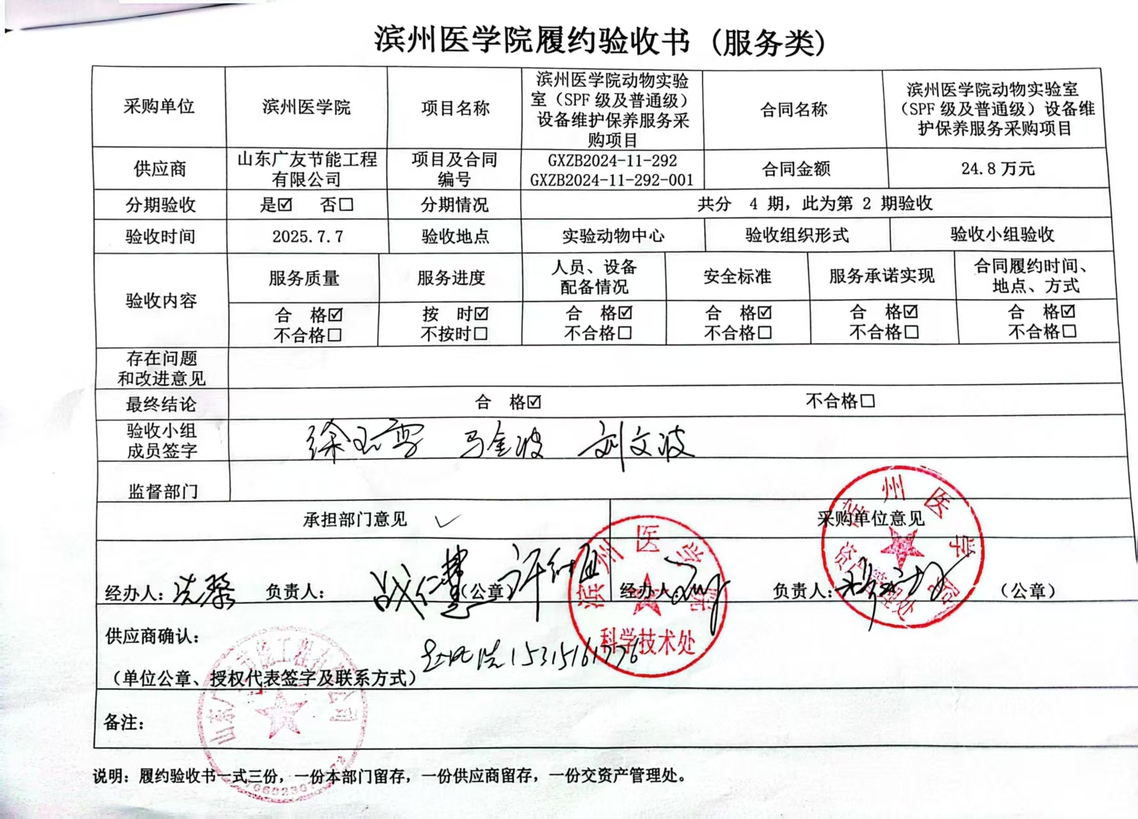 滨州医学院履约验收书（服务类）
采购单位 滨州医学院 项目名称 滨州医学院动物实验室（SPF级及普通级）设备维护保养服务采购项目 合同名称 滨州医学院动物实验室（SPF级及普通级）设备维护保养服务采购项目
供应商 山东广友节能工程有限公司 项目及合同编号 GXZB2024-11-292 GXZB2024-11-292-001 合同金额 24.8万元
分期验收 是☑ 否☐ 分期情况 共分 4 期，此为第 2 期验收
验收时间 2025.7.7 验收地点 实验动物中心 验收组织形式 验收小组验收
验收内容 服务质量 服务进度 人员、设备配备情况 安全标准 服务承诺实现 合同履约时间、地点、方式
合 格☑ 按 时☑ 合 格☑ 合 格☑ 合 格☑ 合 格☑
不合格☐ 不按时☐ 不合格☐ 不合格☐ 不合格☐ 不合格☐
存在问题和改进意见
最终结论 合 格☑ 不合格☐
验收小组成员签字 马金波 刘文波
监督部门
承担部门意见 ✓ 采购单位意见
经办人： 负责人： （公章） 经办人 负责人： （公章）
滨州医学院
科学技术处
滨州医学院
资产管理处
供应商确认：
（单位公章、授权代表签字及联系方式）
山东广友节能工程有限公司
备注：
说明：履约验收书一式三份，一份本部门留存，一份供应商留存，一份交资产管理处。